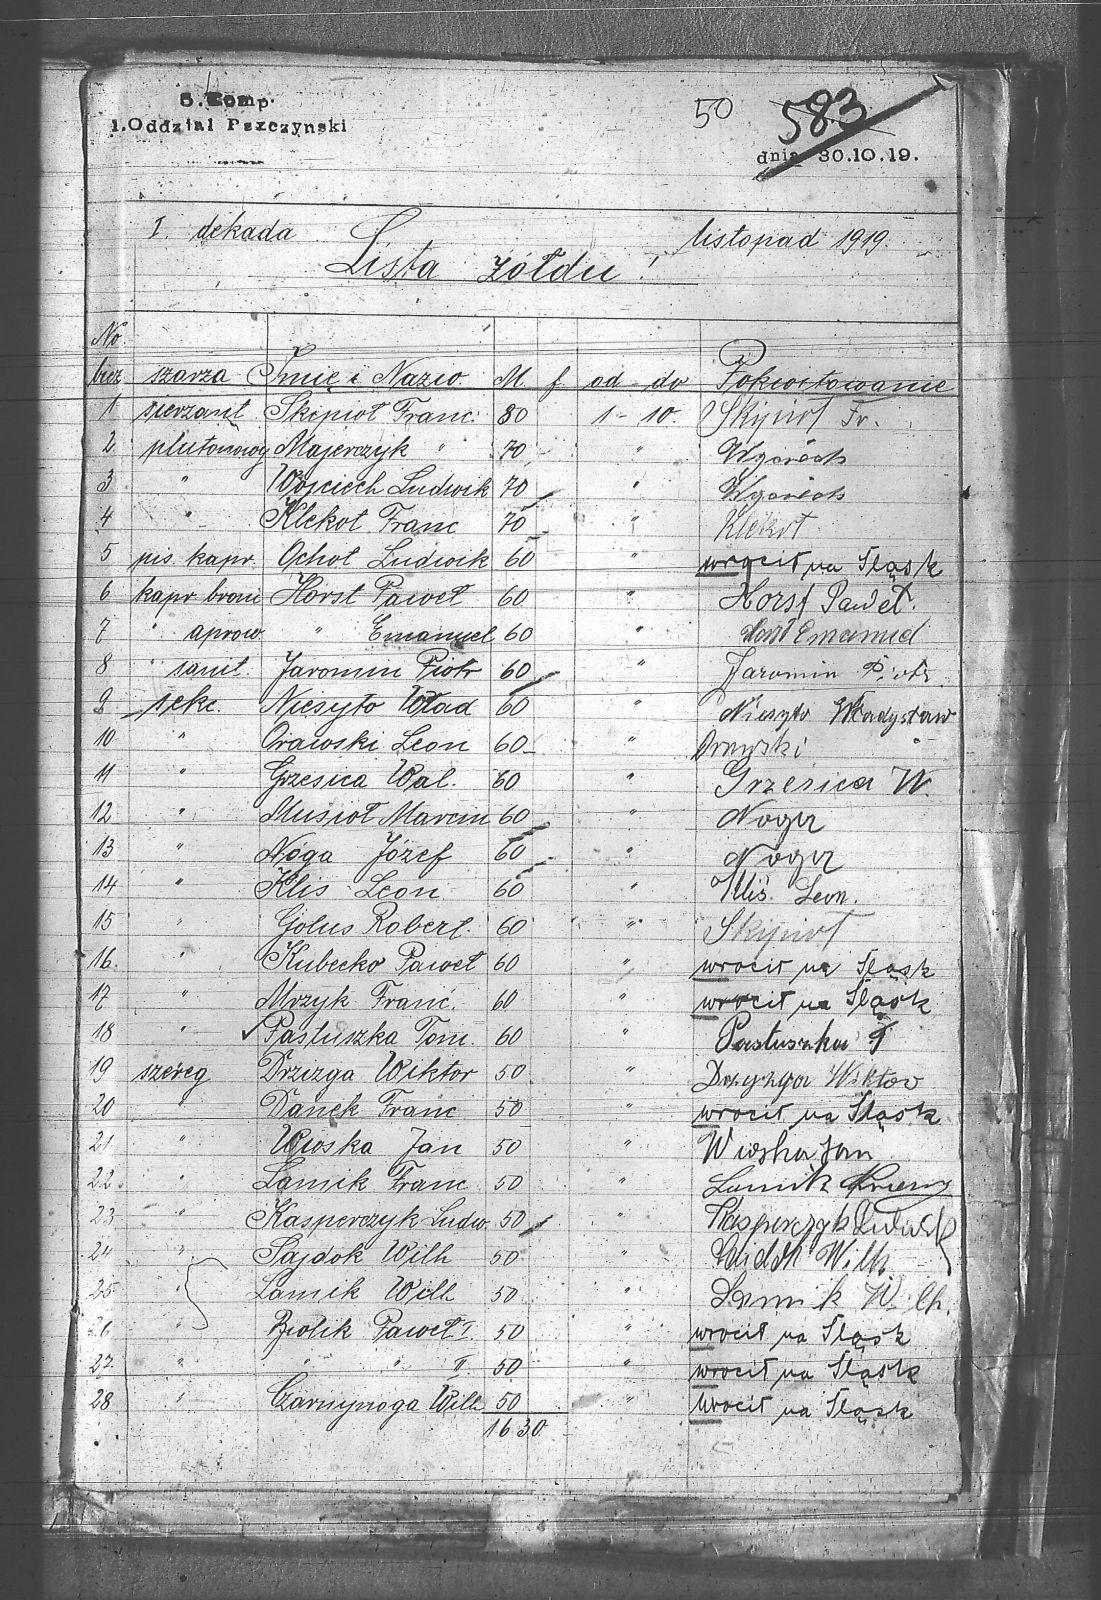 Komp.
1.Oddział Pszczynski
50 583
dnia 30.10.19.
I. dekada listopad 1919.
Lista żółdu!
No
bież szarza Imię i Nazw. M f od - do Pokwitowanie
1 sierzant Skipioł Franc. 80 1 - 10. Skipioł Fr.
2 plutonowy Majerczyk " 70 " Wyciech
3 " Wojciech Ludwik 70 " Wyciech
4 " Klekot Franc 70 " Klekot
5 pis. kapr. Ochot Ludwik 60 " wrocił na Śląsk
6 kapr broni Horst Paweł 60 " Horst Paweł.
7 " aprow. " Emanuel 60 " Horst Emanuel
8 " sanit. Jaromin Piotr 60 " Jaromin Piotr
9 sekc. Niesyto Wład 60 " Niesyto Władysław
10 " Orawski Leon 60 " Orawski
11 " Grzesica Wal. 60 " Grzesica W.
12 " Musioł Marcin 60 " Noga
13 " Noga Józef 60 " Noga
14 " Klis Leon 60 " Klis Leon.
15 " Golus Robert. 60 " Skipioł
16. " Kubecko Paweł 60 " wrocił na Śląsk
17 " Mrzyk Franc. 60 " wrocił na Śląsk
18 " Pastuszka Tom. 60 " Pastuszka T
19 szereg Drzizga Wiktor 50 " Drzyzga Wiktor
20 " Danek Franc 50 " wrocił na Śląsk
21 " Wioska Jan 50 " Wioska Jan
22 " Lamik Franc 50 " Lamik Franc
23 " Kasperczyk Ludw. 50 " Kasperczyk Ludwik
24 " Sajdok Wilh 50 " Sajdok Wilh
25 " Lamik Wilh 50 " Lamik Wilh.
26 " Paweł I 50 " wrocił na Śląsk
27 " " " II 50 " wrocił na Śląsk
28 " Czarnynoga Wilh 50 " wrocił na Śląsk
1630